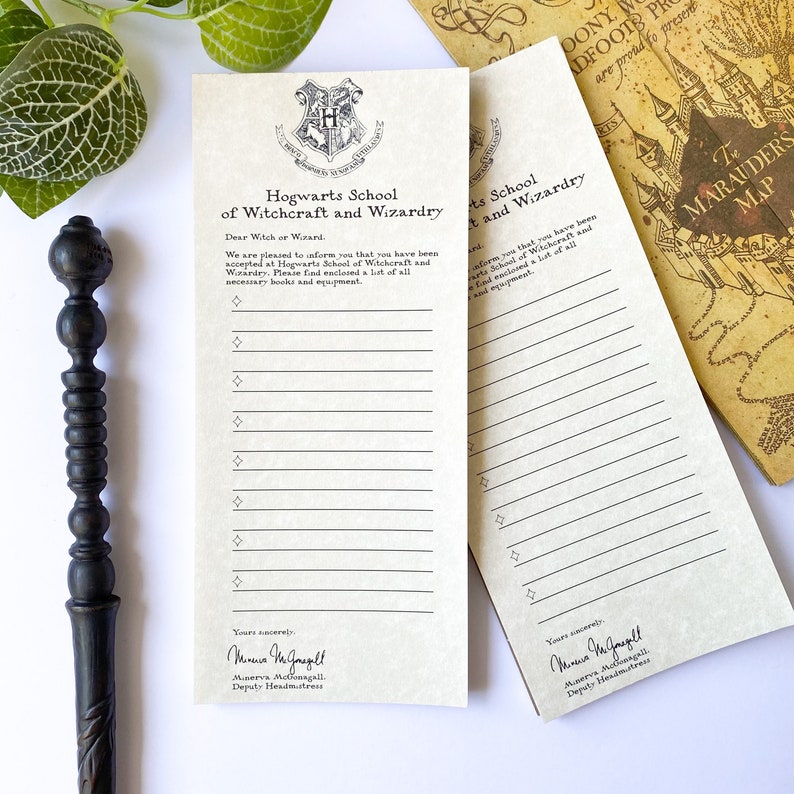 H
DRACO DORMIENS NUNQUAM TITILLANDUS
Hogwarts School
of Witchcraft and Wizardry
Dear Witch or Wizard.
We are pleased to inform you that you have been
accepted at Hogwarts School of Witchcraft and
Wizardry. Please find enclosed a list of all
necessary books and equipment.
Yours sincerely.
Minerva McGonagall
Minerva McGonagall.
Deputy Headmistress
rts School
ft and Wizardry
rd.
inform you that you have been
warts School of Witchcraft and
e find enclosed a list of all
nd equipment.
Yours sincerely.
Minerva McGonagall
Minerva McGonagall.
Deputy Headmistress
OONY, WO
ADFOOT
PRO
are proud to present
The
MARAUDERS
MAP